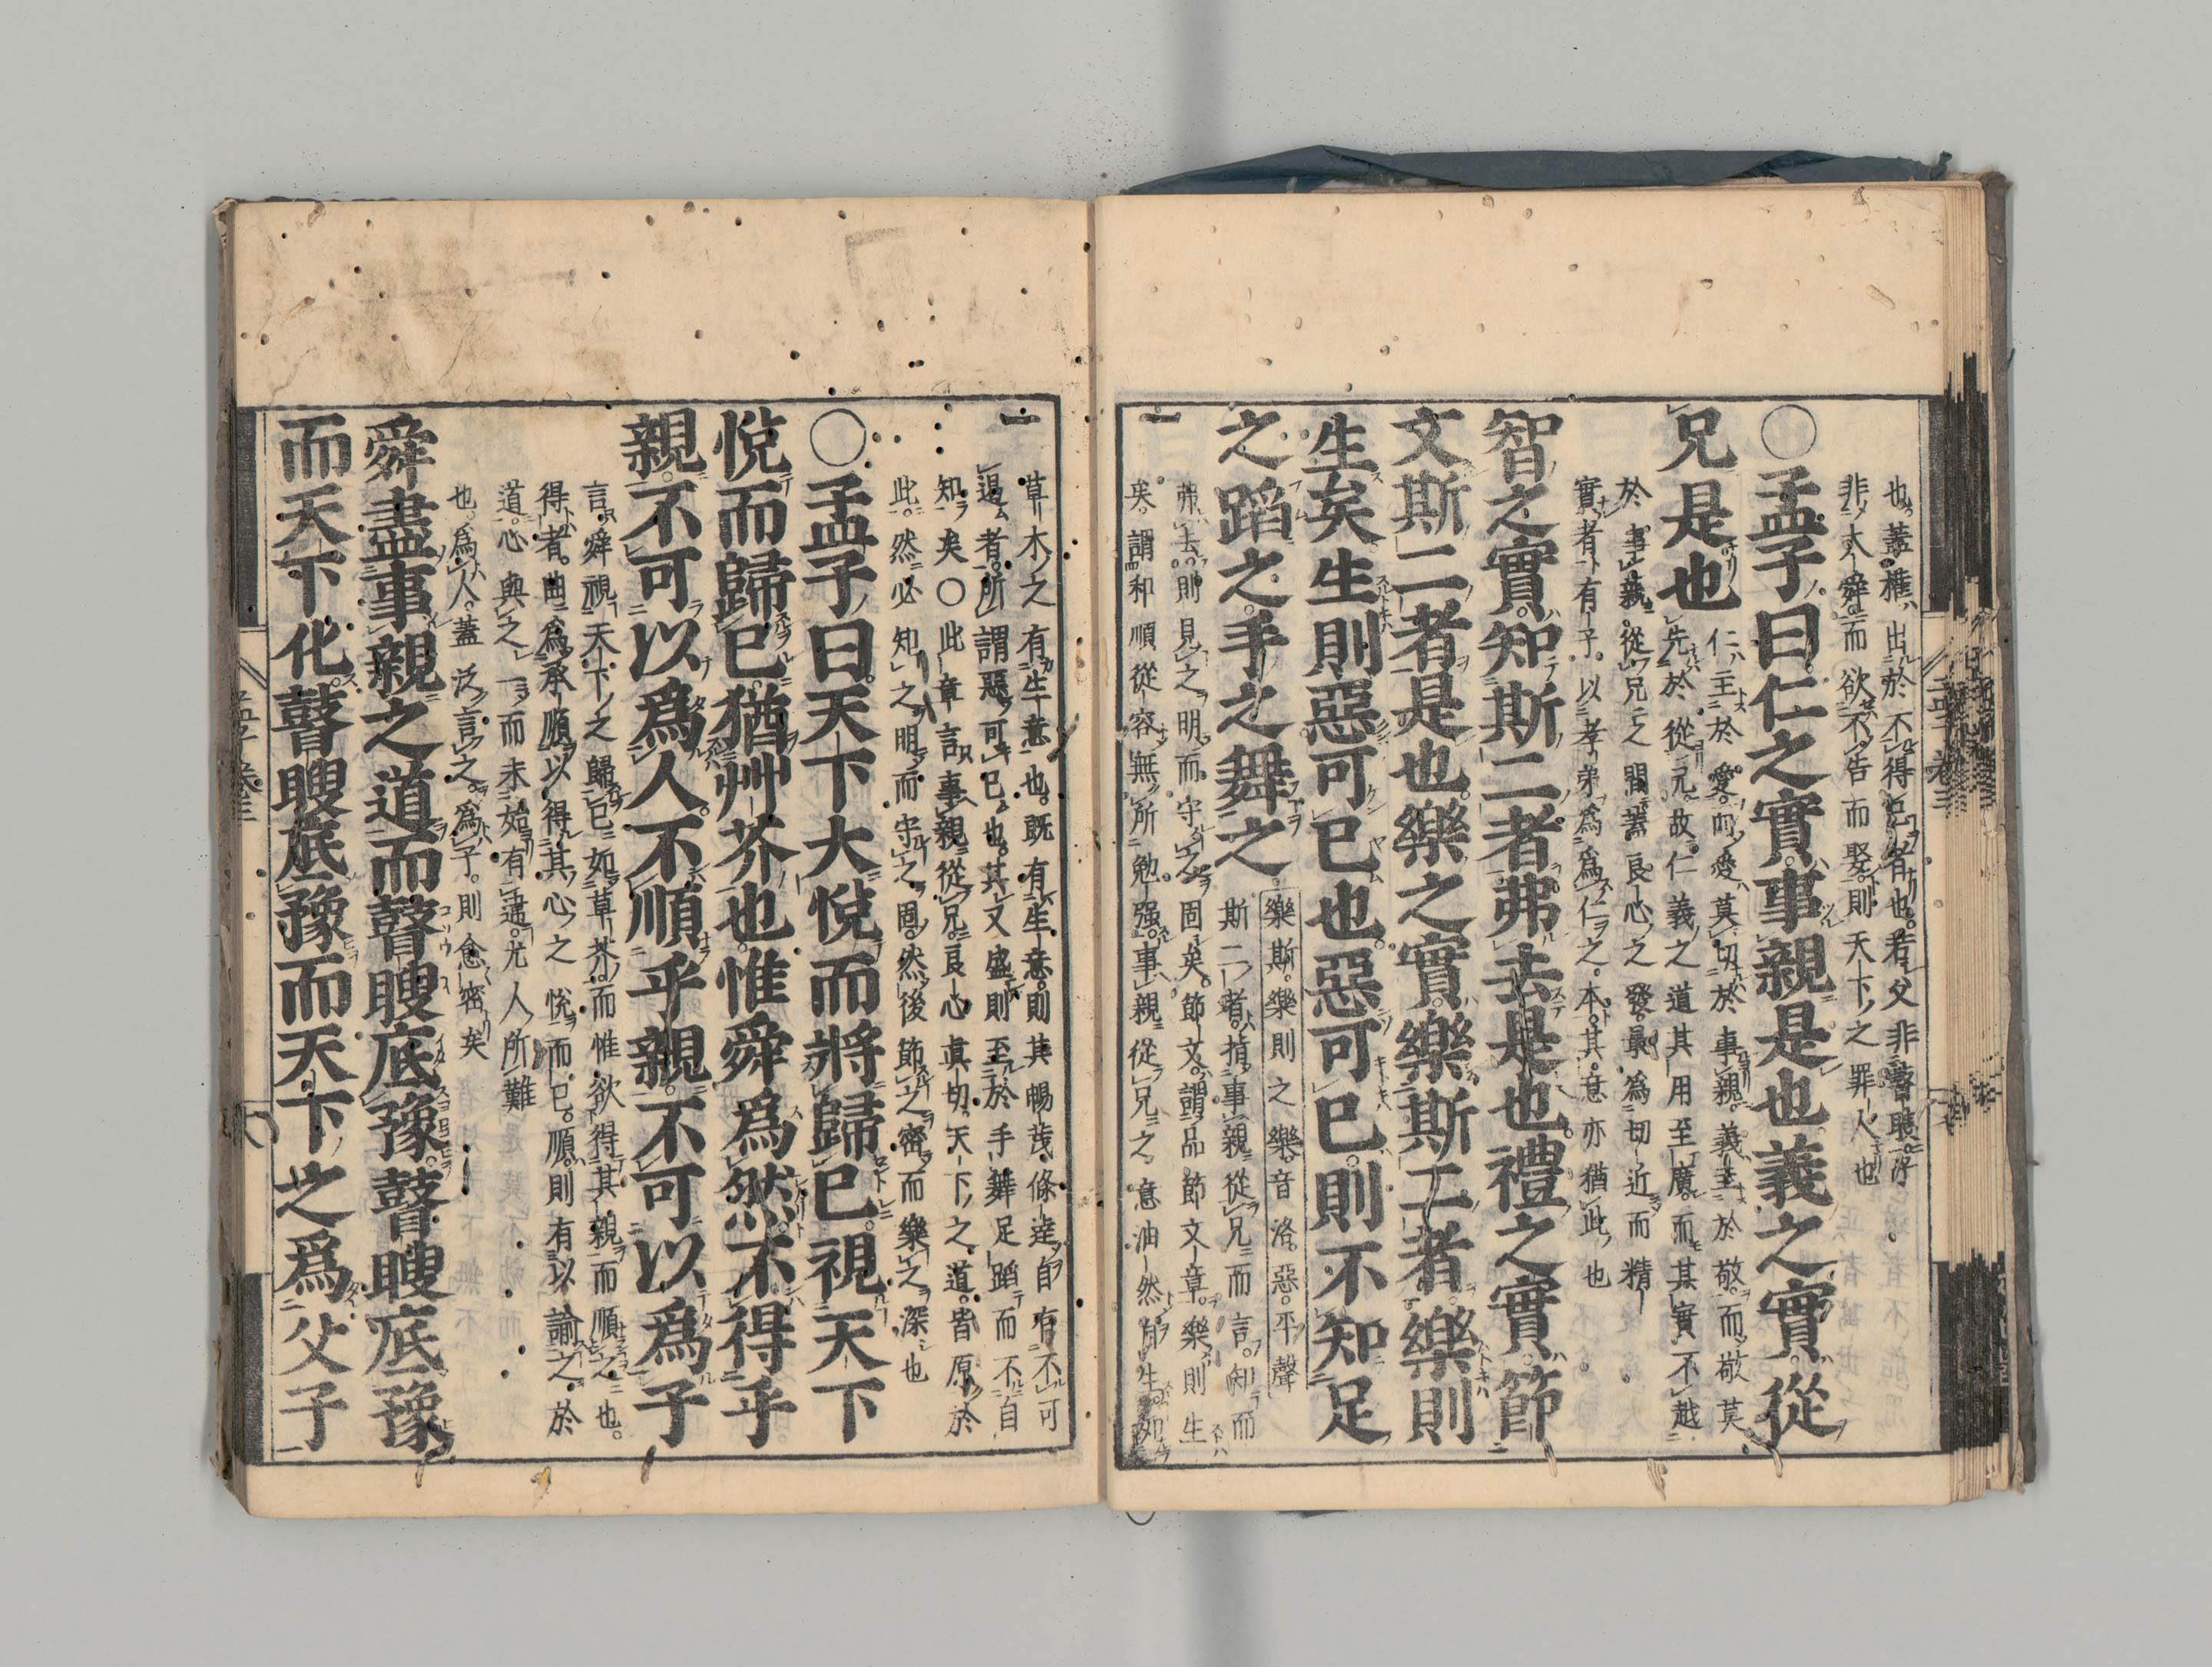 也蓋權出於不得已者也若父非瞽瞍子
非大舜而欲不告而娶則天下之罪人也
○孟子曰仁之實事親是也義之實從
兄是也
仁主於愛而愛莫切於事親義主於敬而敬莫
先於從兄故仁義之道其用至廣而其實不越
於事親從兄之間蓋良心之發最爲切近而精
實者有子以孝弟爲爲仁之本其意亦猶此也
智之實知斯二者弗去是也禮之實節
文斯二者是也樂之實樂斯二者樂則
生矣生則惡可已也惡可已則不知足
之蹈之手之舞之
樂斯樂則之樂音洛惡平聲
斯二者指事親從兄而言知而
弗去則見之明而守之固矣節文謂品節文章樂則生
矣謂和順從容無所勉强事親從兄之意油然自生如
草木之有生意也既有生意則其暢茂條達自有不可
遏者所謂惡可已也其又盛則至於手舞足蹈而不自
知矣○此章言事親從兄良心眞切天下之道皆原於
此然必知之明而守之固然後節之密而樂之深也
○孟子曰天下大悅而將歸已視天下
悅而歸已猶艸芥也惟舜爲然不得乎
親不可以爲人不順乎親不可以爲子
言舜視天下之歸已如草芥而惟欲得其親而順之也
得者曲爲承順以得其心之悅而已順則有以諭之於
道心與之一而未始有違尤人所難
也爲人蓋泛言之爲子則愈密矣
舜盡事親之道而瞽瞍底豫瞽瞍底豫
而天下化瞽瞍底豫而天下之爲父子